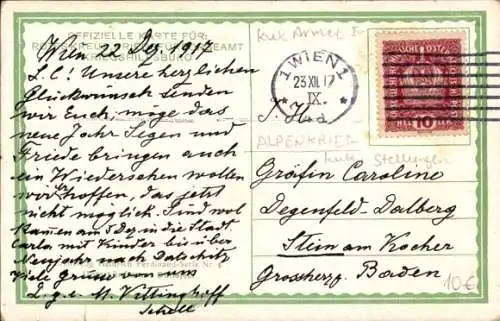 OFFIZIELLE KARTE FÜR:
KRIEGSHILFSBÜRO
Wien 22 Dez. 1917
L. C! Unsere herzlichen
Glückwünsch senden
wir Euch, möge das
neue Jahr Segen und
Friede bringen auch
ein Wiedersehen wollen
wir hoffen, das jetzt
nicht möglich. Sind wol
kamen am 5 Dez in die Stadt
Carla mit Kinder bis über
Neujahr nach Datschitz
viele Grüsse von uns
Ferdinand-Serie Nr.
M. Vittinghoff
Schell
kuk Armee
1 WIEN 1
23 XII 17
IX.
10 HELLER 10
ALPENKRIEG
kuk Stellungen
Gräfin Caroline
Degenfeld-Dalberg
Stein am Kocher
Grossherz. Baden
10€